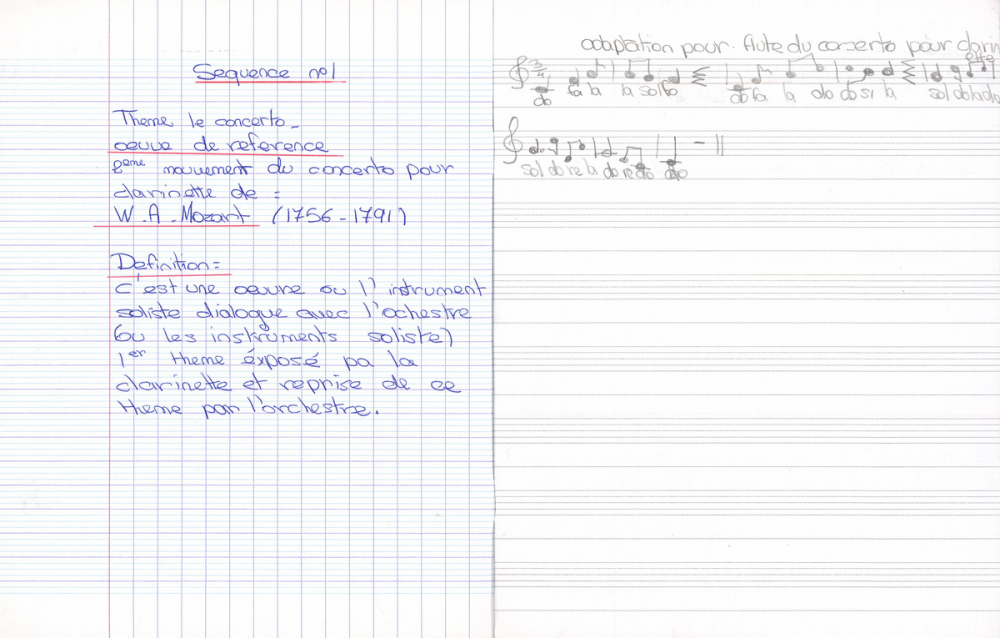 Sequence n°1
Theme le concerto -
oeuvre de reference
2eme mouvement du concerto pour
clarinette de :
W.A.Mozart (1756-1791)
Definition:
c'est une oeuvre ou l'intrument
soliste dialogue avec l'ochestre
(ou les instruments soliste)
1er theme éxposé pa la
clarinette et reprise de ce
theme par l'orchestre.
adaptation pour flute du concerto pour clarinette
3/4
do fa la la sol fa do fa la do do si la sol do la do
sol do re la do re do do